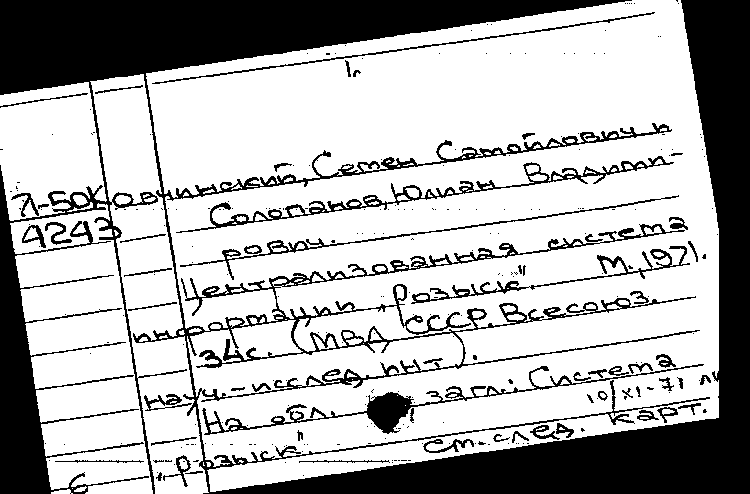 1г
Л-50 Ковчинский, Семен Самойлович и
4243 Солопанов, Юлиан Владими-
рович.
Централизованная система
информации „Розыск". М., 1971.
34с. (МВД СССР. Всесоюз.
науч.-исслед. инт).
На обл. загл.: Система
10/XI-71
„Розыск". см. след. карт.
6